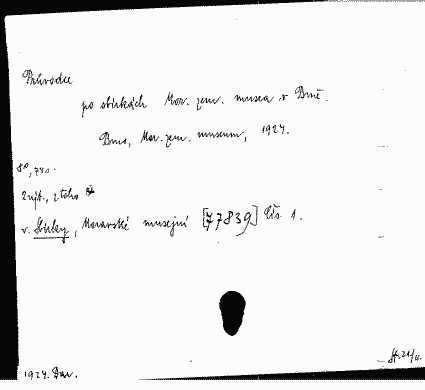 Průvodce
po sbírkách Mor. zem. musea v Brně.
Brno, Mor. zem. museum, 1924.
8°, 74 s.
2 výt., z toho
v. Sbírky, Moravské musejní [77839] Čís. 1.
1924. Dar.